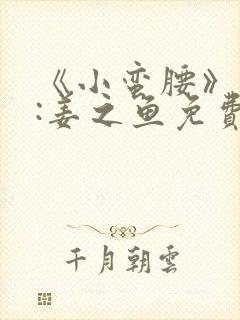 《小蛮腰》
:姜之鱼免費
千月朝雲